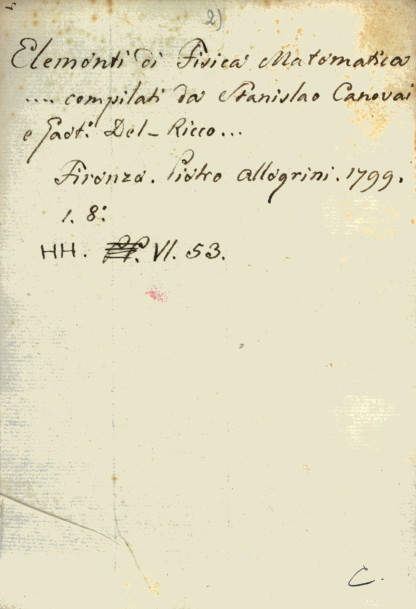 2)
Elementi di Fisica Matematica
.... compilati da Stanislao Canovai
e Gaet.º Del-Ricco...
Firenze. Pietro Allegrini. 1799.
1. 8.º
HH. VI. 53.
C.